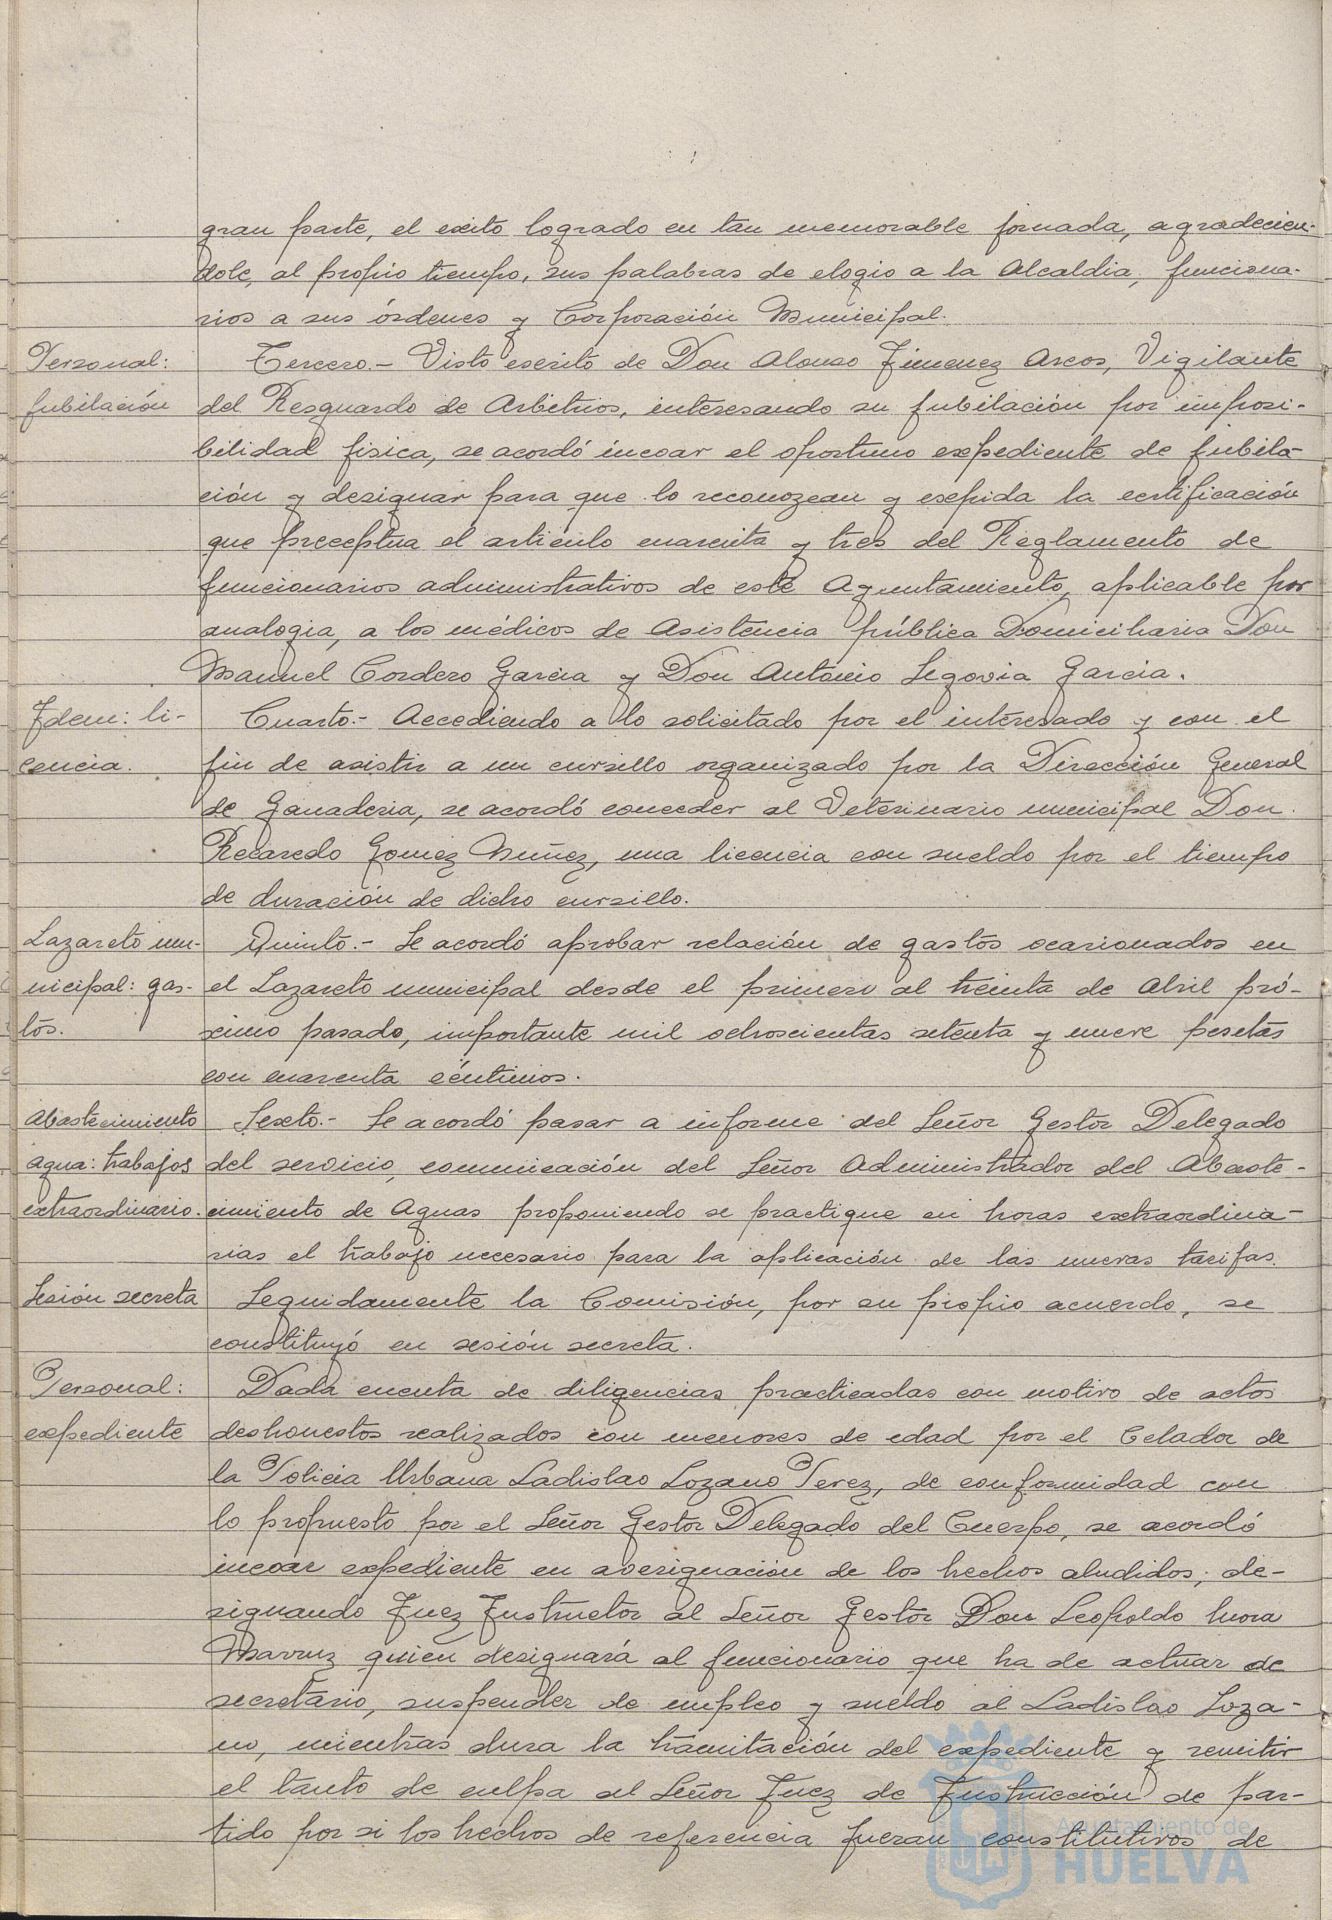 gran parte, el exito logrado en tan memorable jornada, agradecien-
dole, al propio tiempo, sus palabras de elogio a la Alcaldia, funciona-
rios a sus órdenes y Corporación Municipal.
Personal:
jubilación
Tercero.- Visto escrito de Don Alonso Jimenez Arcos, Vigilante
del Resguardo de Arbitrios, interesando su jubilación por imposi-
bilidad fisica, se acordó incoar el oportuno expediente de jubila-
ción y designar para que lo reconozcan y expida la certificación
que preceptua el articulo cuarenta y tres del Reglamento de
funcionarios administrativos de este Ayuntamiento, aplicable por
analogia, a los médicos de Asistencia pública Domiciliaria Don
Manuel Cordero Garcia y Don Antonio Segovia Garcia.
Idem: li-
cencia.
Cuarto.- Accediendo a lo solicitado por el interesado y con el
fin de asistir a un cursillo organizado por la Dirección General
de Ganaderia, se acordó conceder al Veterinario municipal Don
Recaredo Gomez Nuñez, una licencia con sueldo por el tiempo
de duración de dicho cursillo.
Lazareto mu-
nicipal: gas-
tos.
Quinto.- Se acordó aprobar relación de gastos ocasionados en
el Lazareto municipal desde el primero al treinta de Abril pró-
ximo pasado, importante mil ochoscientas setenta y nueve pesetas
con cuarenta céntimos.
Abastecimiento
agua: trabajos
extraordinario.
Sexto.- Se acordó pasar a informe del Señor Gestor Delegado
del servicio, comunicación del Señor Administrador del Abaste-
cimiento de Aguas proponiendo se practique en horas extraordina-
rias el trabajo necesario para la aplicación de las nuevas tarifas.
Sesión secreta
Seguidamente la Comisión, por su propio acuerdo, se
constituyó en sesión secreta.
Personal:
expediente
Dada cuenta de diligencias practicadas con motivo de actos
deshonestos realizados con menores de edad por el Celador de
la Policia Urbana Ladislao Lozano Perez, de conformidad con
lo propuesto por el Señor Gestor Delegado del Cuerpo, se acordó
incoar expediente en averiguación de los hechos aludidos; de-
signando Juez Instructor al Señor Gestor Don Leopoldo
quien designará al funcionario que ha de actuar de
secretario, suspender de empleo y sueldo al Ladislao Loza-
no, mientras dura la tramitación del expediente y remitir
el tanto de culpa al Señor Juez de Instrucción de par-
tido por si los hechos de referencia fueran constitutivos de
Ayuntamiento de
HUELVA